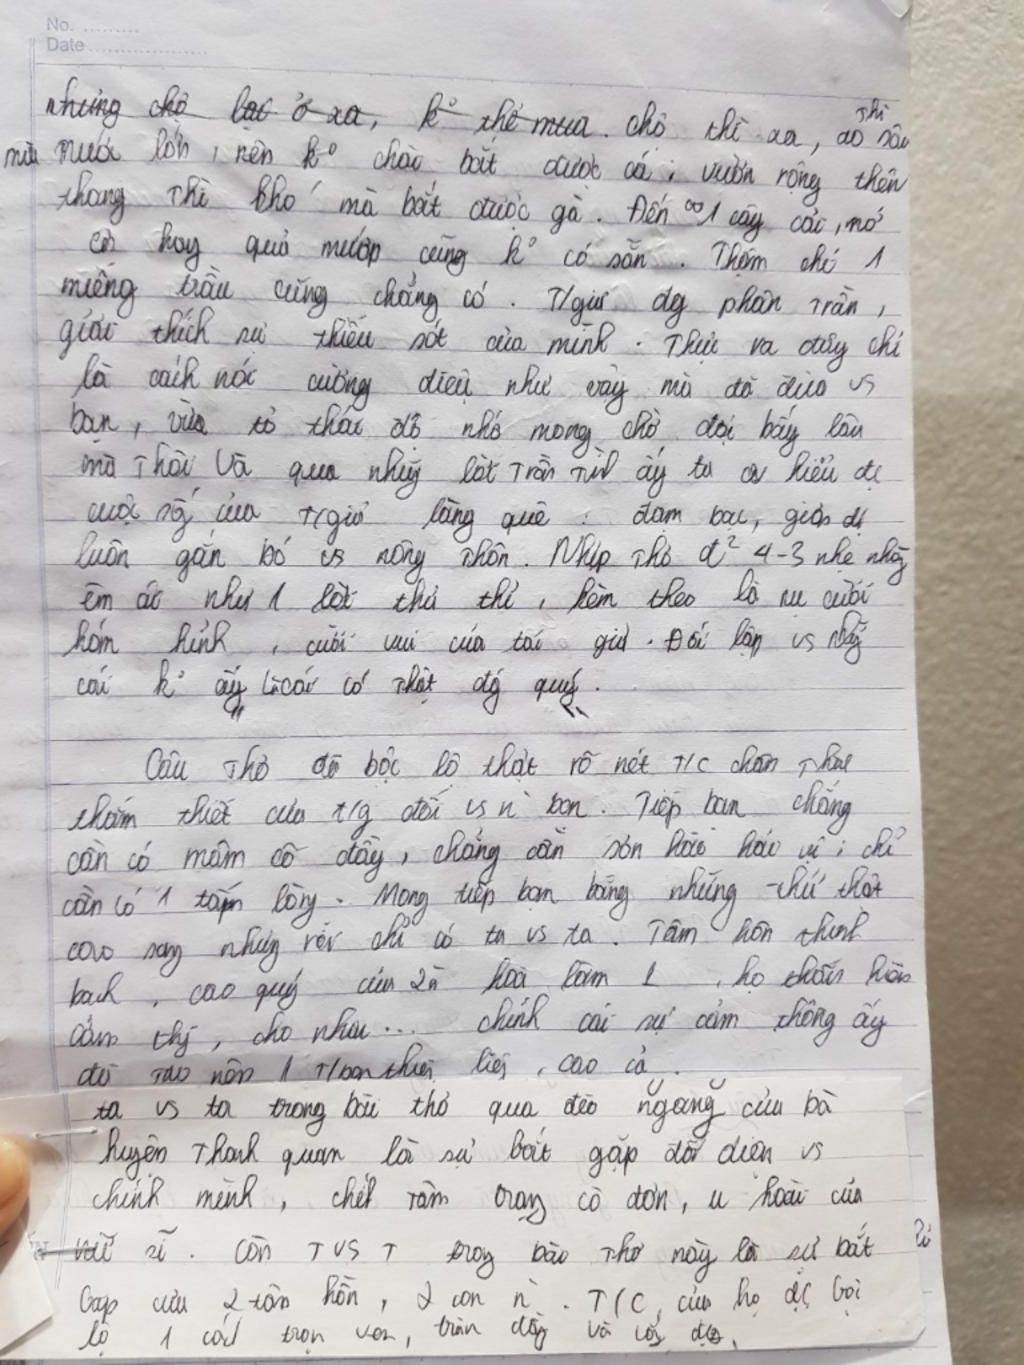 No. .........
Date....................
những chợ lại ở xa, k° thể mua. chợ thì xa, ao thì sâu
nước lớn, nên k° chài bắt được cá; vườn rộng thên
thang thì khó mà bắt được gà. Đến 1 cây cải, nó
cà hay quả mướp cũng k° có sẵn. Thậm chí 1
miếng trầu cũng chẳng có. T/giả đg phân trần,
giải thích sự thiếu sót của mình. Thực ra đây chỉ
là cách nói cường điệu như vậy mà đã đùa vs
bạn, vừa tỏ thái độ nhớ mong chờ đợi bấy lâu
mà thôi Và qua nhữg lời trần tình ấy ta cx hiểu đc
cuộc sg của T/giả làng quê: đạm bạc, giản dị
luôn gắn bó vs nông thôn. Nhịp thơ 4-3 nhẹ nhàg
êm ái như 1 lời thủ thỉ, kèm theo là nụ cười
hóm hỉnh, cười vui của tác giả. Đối lập vs nhữg
cái k° ấy là cái có thật đg quý.
Câu thơ đã bộc lộ thật rõ nét T/c chân thật
thắm thiết của t/g đối vs n` bạn. Tiếp bạn chẳng
cần có mâm cỗ đầy, chẳng cần sơn hào hải vị; chỉ
cần có 1 tấm lòng. Mong tiếp bạn bằng những thứ thật
cao sang nhưng rồi chỉ có ta vs ta. Tâm hồn thanh
bạch, cao quý của 2n` hoà làm 1, họ thấu hiểu
cảm thg, cho nhau... chính cái sự cảm thông ấy
đã tạo nên 1 T/bạn thiêg liêg, cao cả.
ta vs ta trong bài thơ qua đèo ngang của bà
huyện Thanh quan là sự bắt gặp đối diện vs
chính mình, chết tâm trong cô đơn, u hoài của
nữ sĩ. Còn T vs T trong bài thơ này là sự bắt
Gặp của 2 tâm hồn, 2 con n`. T/C của họ đc bộc
lộ 1 cách trọn vẹn, tràn đầy và